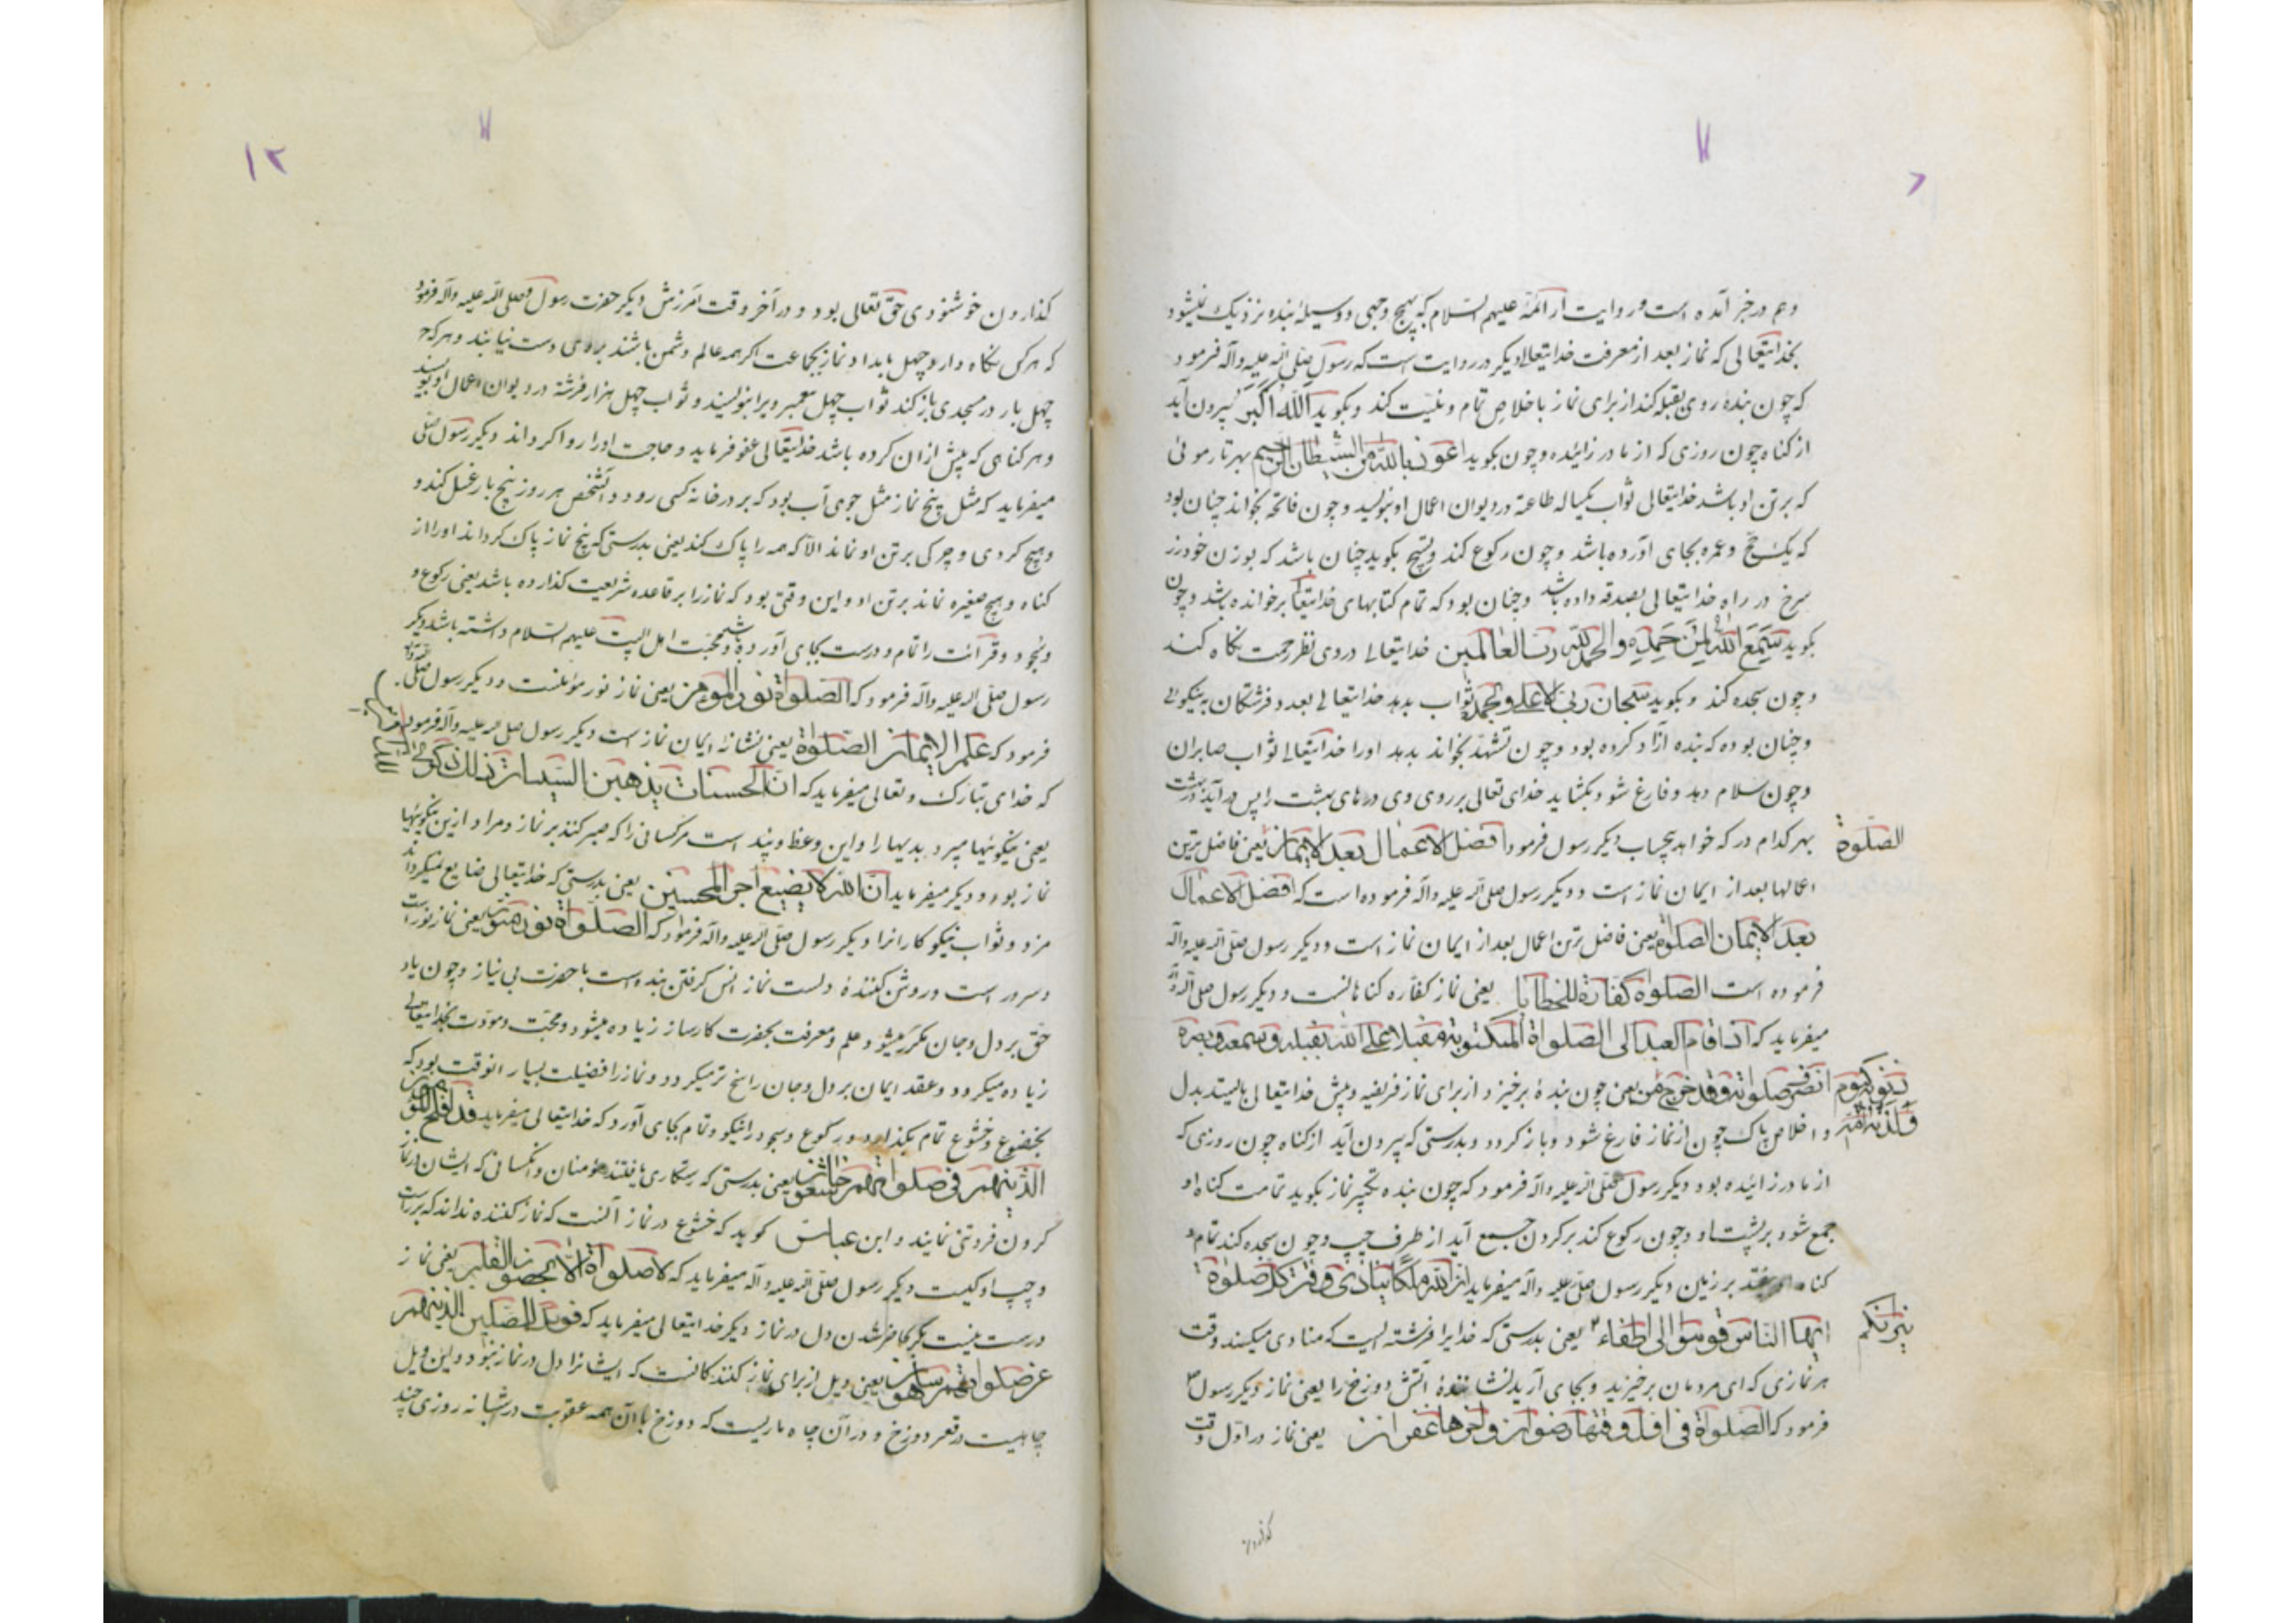 وهم در خبر آمده است و روایت از ائمّه علیهم السلام که بهیچ وجهی و وسیلهٔ بنده نزدیک نمیشود
بخدایتعالی که نماز بعد از معرفت خدایتعالی دیکر در روایت است که رسول صلی الله علیه وآله فرمود
که چون بندهٔ روی بقبله کند از برای نماز باخلاص تمام و نیّت کند و بکوید الله اکبر بیرون آید
از کناه چون روزی که از مادر زائیده و چون بکوید اعوذ بالله من الشیطان الرجیم بهر تار موئی
که بر تن او باشد خدایتعالی ثواب یکساله طاعة در دیوان اعمال او بنویسد و چون فاتحه بخواند چنان بود
که یک حج و عمره بجای آورده باشد و چون رکوع کند و تسبیح بکوید چنان باشد که بوزن خود زر
سرخ در راه خدایتعالی بصدقه داده باشد و چنان بود که تمام کتابهای خدایتعالی برخوانده باشد و چون
بکوید سمع الله لمن حمده والحمد لله رب العالمین خدایتعالی در وی نظر رحمت نکاه کند
و چون سجده کند و بکوید سبحان ربی الاعلی وبحمده ثواب بدهد خدایتعالی بعدد فرشتکان به نیکوئی
و چنان بوده که بنده آزاد کرده بود و چون تشهد بخواند بدهد اورا خدایتعالی ثواب صابران
و چون سلام دهد و فارغ شود بکشاید خدای تعالی بر روی وی درهای بهشت را پس در آید در بهشت
بهر کدام در که خواهد بیحساب دیکر رسول فرمود افضل الاعمال بعد الایمان یعنی فاضل ترین
الصلوة
اعمالها بعد از ایمان نماز است و دیکر رسول صلی الله علیه وآله فرموده است که افضل الاعمال
بعد الایمان الصلوة یعنی فاضل ترین اعمال بعد از ایمان نماز است و دیکر رسول صلی الله علیه وآله
فرموده است الصلوة کفارة للخطایا یعنی نماز کفاره کناهانست و دیکر رسول صلی الله
میفرماید که اذا قام العبد الی الصلواة المکتوبة مقبلا علی الله بقلبه وسمعه وبصره
انصرف صلوته وقد خرج من یعنی چون بندهٔ برخیزد از برای نماز فریضه و پیش خدایتعالی بایستد بدل
ذنوبه کیوم
ولدته امه
و اخلاص پاک چون از نماز فارغ شود و باز کردد و بدرستی که بیرون آید از کناه چون روزی که
از مادر زائیده بود دیکر رسول صلی الله علیه وآله فرمود که چون بنده تکبیر نماز بکوید تمامت کناه او
جمع شود بر پشت او و چون رکوع کند بر کردن جمع آید از طرف چپ و چون سجده کند تمام
کناه او بیفتد بر زمین دیکر رسول صلی علیه وآله میفرماید ان لله ملکا ینادی وقت کل صلوة
ایها الناس قوموا الی اطفاء یعنی بدرستی که خدایرا فرشته ایست که منادی میکند وقت
نیرانکم
هر نمازی که ای مردمان برخیزید و بجای آرید نشانندهٔ آتش دوزخ را یعنی نماز دیکر رسول
فرمود که الصلواة فی اول وقتها رضوان واخرها غفران یعنی نماز در اول وقت
کذاردن
۱۲
کذاردن خوشنودی حق تعالی بود و در آخر وقت آمرزش دیکر حضرت رسول صلی الله علیه وآله فرمود
که هرکس نکاه دارد چهل بامداد نماز بجماعت اکر همه عالم دشمن باشند بروی دست نیابند و هرکه
چهل بار در مسجدی باز کند ثواب چهل پیغمبر ویرا بنویسند و ثواب چهل هزار فرشته در دیوان اعمال او بنویسند
و هر کناهی که پیش از ان کرده باشد خدایتعالی عفو فرماید و حاجت اورا روا کرداند دیکر رسول صلی
میفرماید که مثل پنج نماز مثل جوی آب بود که بر در خانه کسی رود و آنشخص هر روز پنج بار غسل کند و
و هیچ کردی و چرکی بر تن او نماند الا که همه را پاک کند یعنی بدرستی که پنج نماز پاک کرداند اورا از
کناه و هیچ صغیره نماند بر تن او و این وقتی بود که نماز را بر قاعده شریعت کذارده باشد یعنی رکوع و
و سجود و قرائت را تمام و درست بجای آورده باشد و محبت اهل البیت علیهم السلام داشته باشد دیکر
رسول صلی الله علیه وآله فرمود که الصلواة نور المؤمن یعنی نماز نور مؤمنست و دیکر رسول صلی
فرمود که علم الایمان الصلواة یعنی نشانهٔ ایمان نماز است دیکر رسول صلی الله علیه وآله فرمود
که خدای تبارک و تعالی میفرماید که ان الحسنات یذهبن السیئات ذلک ذکری
للذاکرین
یعنی نیکوئیها میبرد بدیها را و این وعظ و پند است مر کسانی را که صبر کنند بر نماز و مراد ازین نیکوئیها
نماز بود و دیکر میفرماید ان الله لا یضیع اجر المحسنین یعنی بدرستی که خدایتعالی ضایع نمیکرداند
مزد و ثواب نیکوکارانرا دیکر رسول صلی الله علیه وآله فرمود که الصلواة نور یعنی نماز نور است
و سرور است و روشن کنندهٔ دلست نماز انس کرفتن بنده است با حضرت بی نیاز و چون یاد
حق بر دل و جان مکرر میشود علم و معرفت بحضرت کارساز زیاده میشود و محبت و مودت بخدایتعالی
زیاده میکردد و عقد ایمان بر دل و جان راسخ تر میکردد و نماز را فضیلت بسیار انوقت بود که
بخضوع و خشوع تمام بکذارد و رکوع و سجود را نیکو و تمام بجای آورد که خدایتعالی میفرماید قد افلح المؤمنون
الذین هم فی صلواتهم خاشعون یعنی بدرستی که رستکاری یافتند مؤمنان و آنکسانی که ایشان در نماز
کردن فروتنی نمایند و ابن عباس کوید که خشوع در نماز آنست که نماز کننده نداند که بر راست
و چپ او کیست دیکر رسول صلی الله علیه وآله میفرماید که لا صلواة الا بحضور القلب یعنی نماز
درست نیست مکر بحاضر شدن دل در نماز دیکر خدایتعالی میفرماید که فویل للمصلین الذین هم
عن صلواتهم ساهون یعنی ویل از برای نماز کنندکانست که ایشانرا دل در نماز نبود و این ویل
چاهیست در قعر دوزخ و در آن چاه ماریست که دوزخ با آن همه عقوبت در شبانه روزی چند